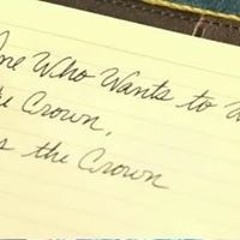 One Who Wants to
the Crown,
the Crown